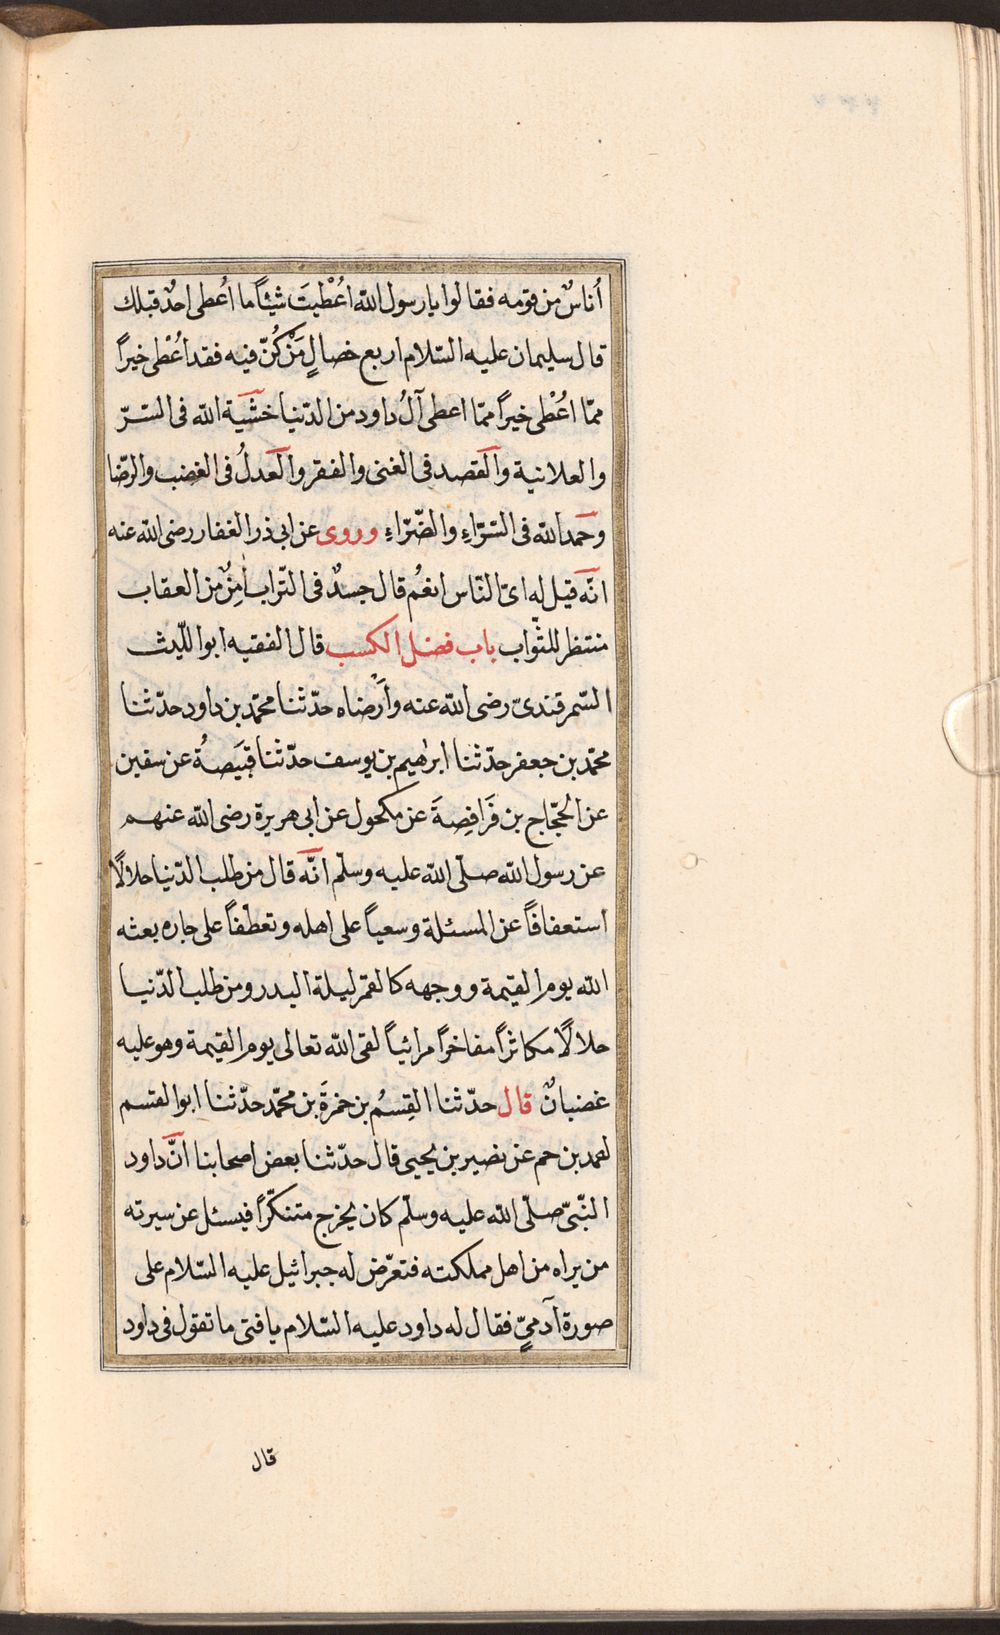 أُناسٌ من قومه فقالوا يا رسول الله اُعْطيتَ شيئاً ما اُعطى احدٌ قبلك
قال سليمان عليه السّلام اربع خصالٍ مَنْ كُنّ فيه فقد اُعْطى خيراً
ممّا اُعْطى خيراً ممّا اعطى آلُ داود من الدّنيا خشية الله فى السّرّ
والعلانية والقصد فى الغنى والفقر والعدلُ فى الغضب والرّضا
وحمد الله فى السّرّاءِ والضّرّاءِ وروى عن ابى ذر الغفار رضى الله عنه
انّه قيل له اىّ النّاس انعُم قال جسدٌ فى التّراب اٰمِنٌ من العقاب
منتظر للثّواب باب فضل الكسب قال الفقيه ابو اللّيث
السّمرقندىّ رضى الله عنه وأَرْضاه حدّثنا محمّد بن داود حدّثنا
محمّد بن جعفر حدّثنا ابرٰهيم بن يوسف حدّثنا قبَيصةُ عن سفين
عن الحجّاج بن فَرَافِصةَ عن مكحول عن ابى هريرة رضى الله عنهم
عن رسول الله صلّى الله عليه وسلّم انّه قال من طلب الدّنيا حلالًا
استعفافًا عن المسئلة وسعياً على اهله وتعطّفاً على جاره بعثه
الله يوم القيمة ووجهه كالقمر ليلة البدر ومن طلب الدّنيا
حلالًا مكاثراً مفاخراً مرائياً لقى الله تعالى يوم القيمة وهو عليه
غضبانٌ قال حدّثنا القِسمُ بن حمزةَ بن محمّد حدّثنا ابو القسم
احمد بن حم عن نصير بن يحيى قال حدّثنا بعض اصحابنا انّ داود
النّبىّ صلّى الله عليه وسلّم كان يخرج متنكّراً فيسئل عن سيرته
من يراه من اهل مملكته فتعرّض له جبرائيل عليه السّلام على
صورة آدمىّ فقال له داود عليه السّلام يا فتى ما تقول فى داود
قال